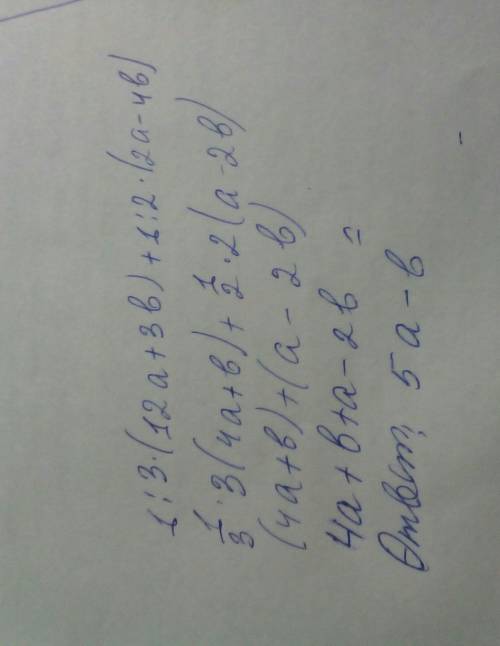 1:3·(12a+3в)+1:2·(2a-4в)
1/3·3(4a+в)+1/2·2(a-2в)
(4a+в)+(a-2в)
4a+в+a-2в=
Ответ: 5a-в